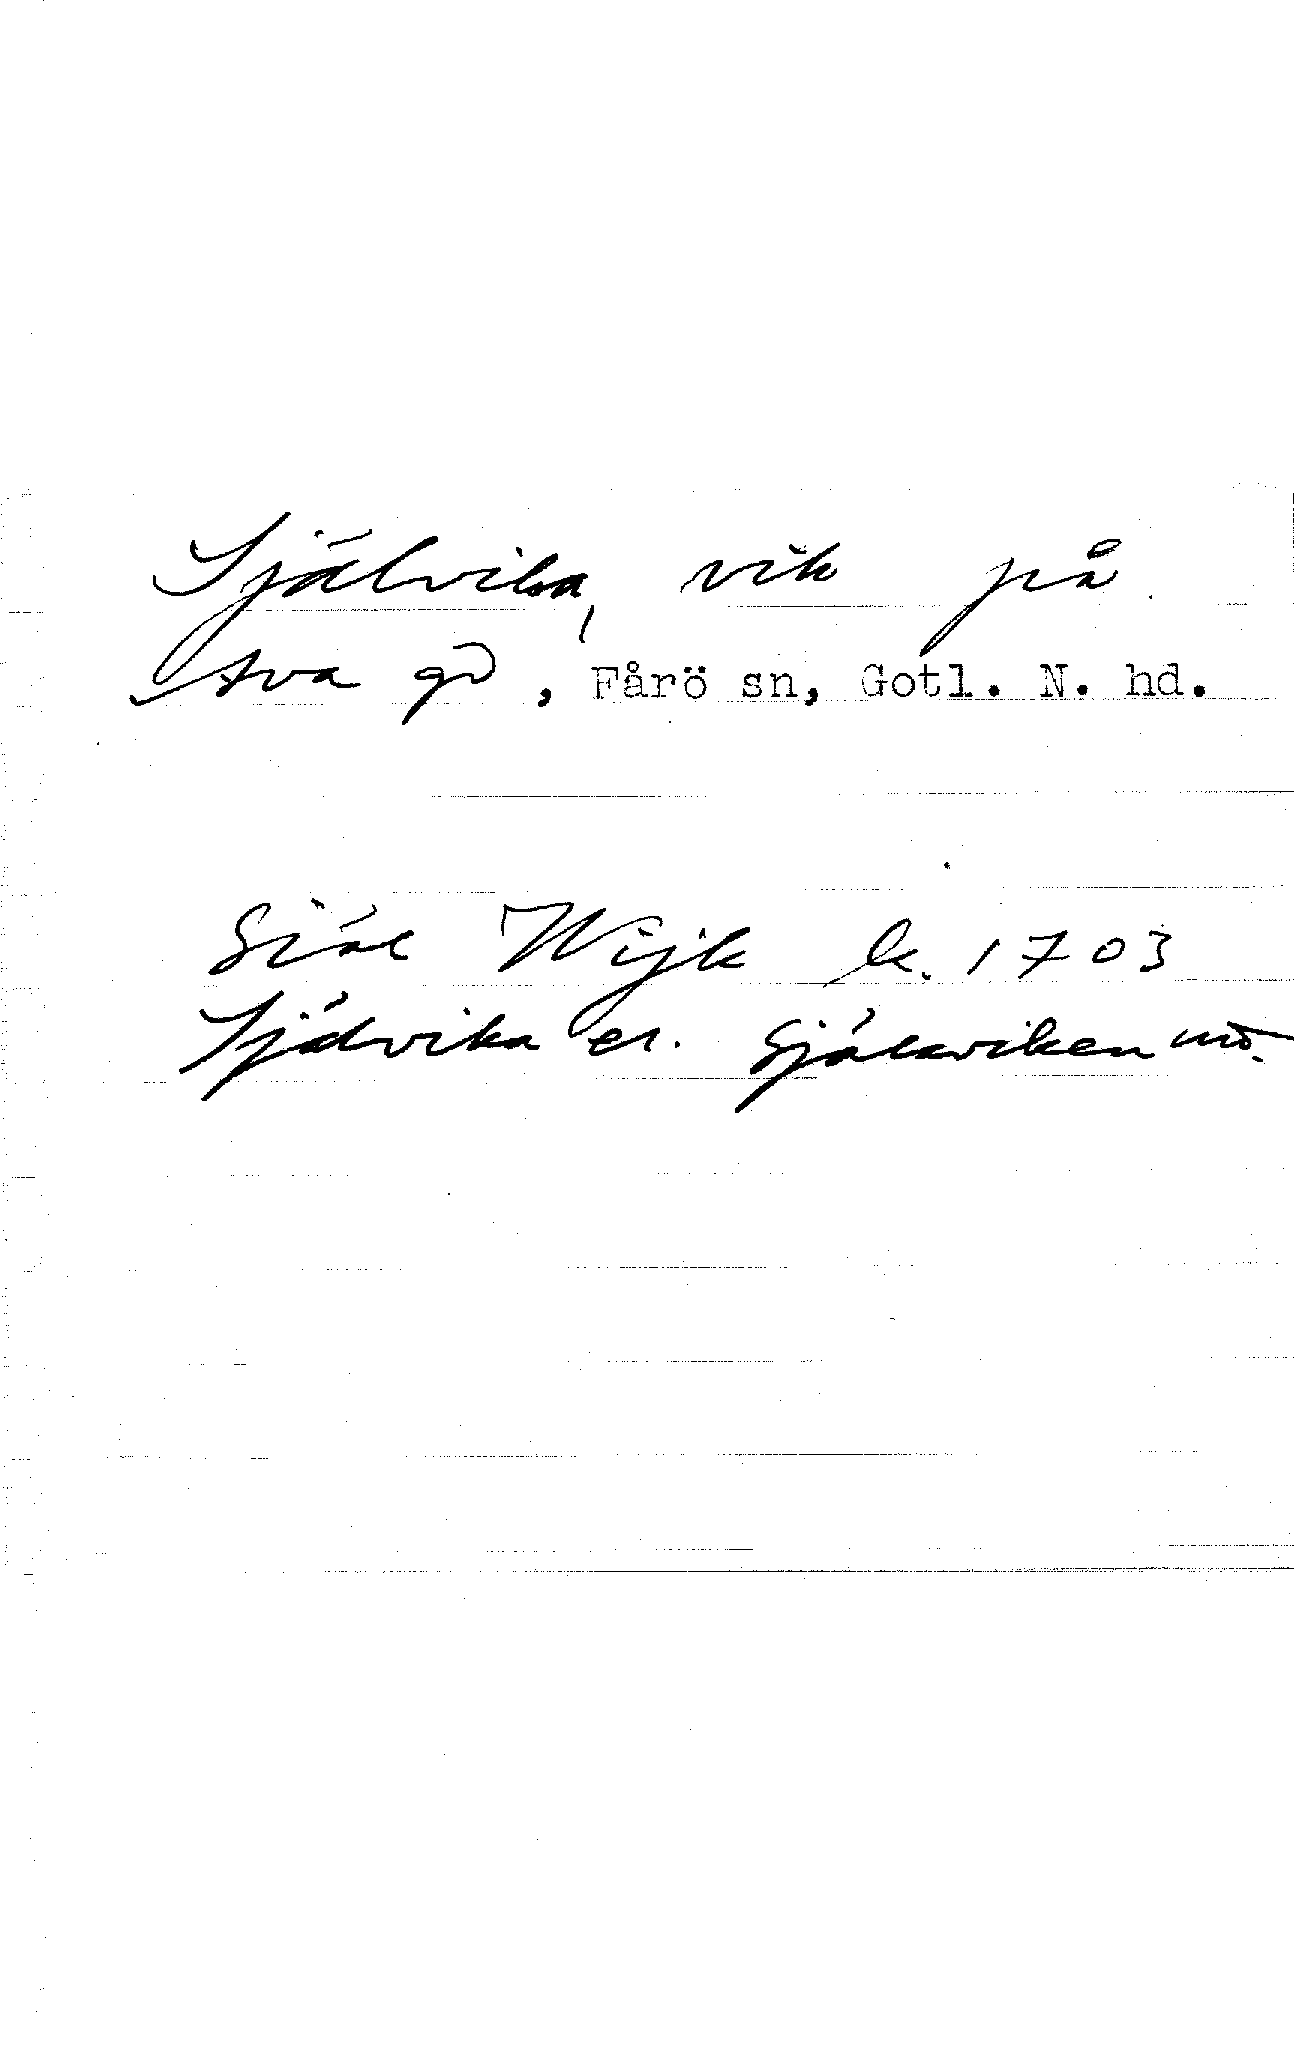 Självika, vik på
Ava gd, Fårö sn, Gotl. N. hd.
Siäl Wijk k. 1703
Självika er. Själaviken